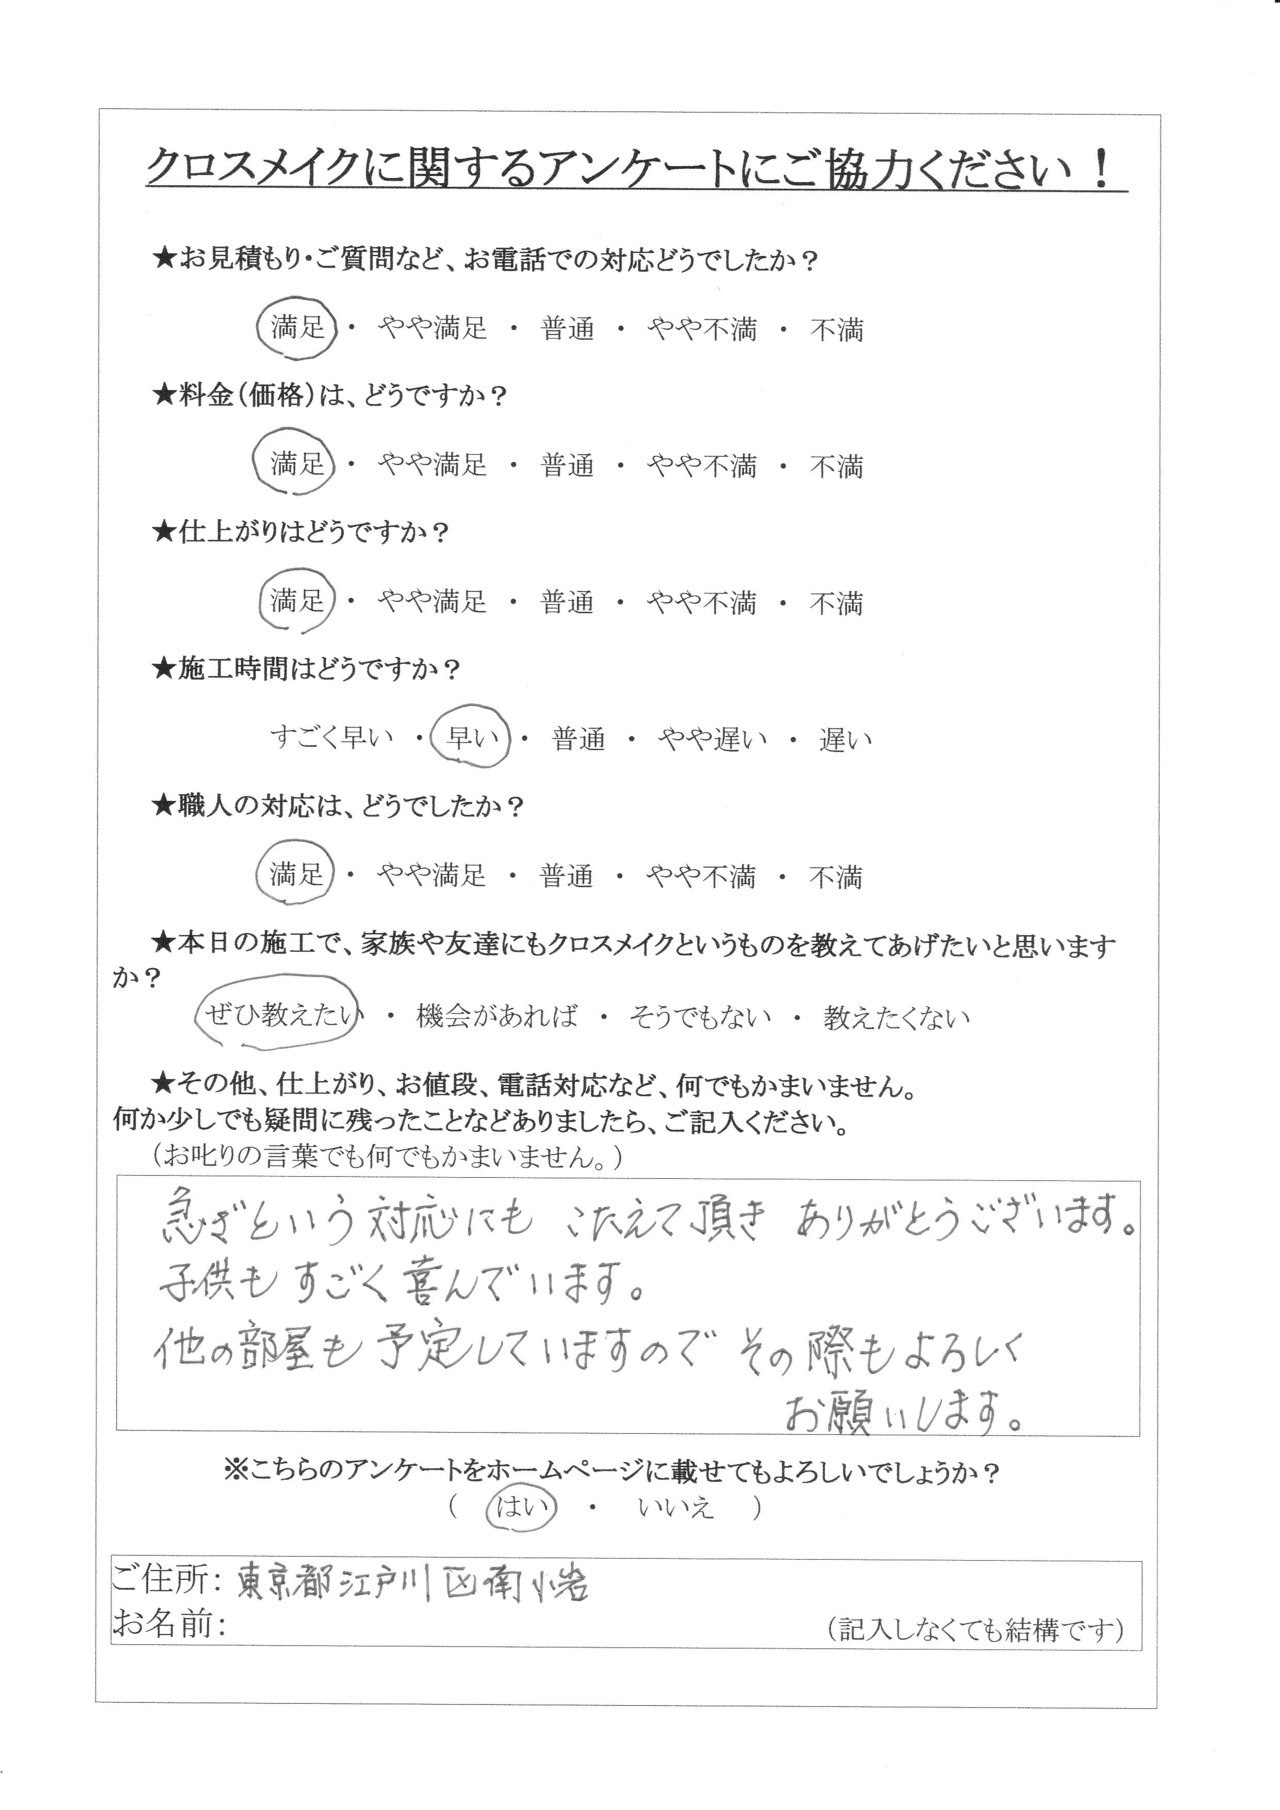 クロスメイクに関するアンケートにご協力ください！
★お見積もり・ご質問など、お電話での対応どうでしたか？
満足 ・ やや満足 ・ 普通 ・ やや不満 ・ 不満
★料金（価格）は、どうですか？
満足 ・ やや満足 ・ 普通 ・ やや不満 ・ 不満
★仕上がりはどうですか？
満足 ・ やや満足 ・ 普通 ・ やや不満 ・ 不満
★施工時間はどうですか？
すごく早い ・ 早い ・ 普通 ・ やや遅い ・ 遅い
★職人の対応は、どうでしたか？
満足 ・ やや満足 ・ 普通 ・ やや不満 ・ 不満
★本日の施工で、家族や友達にもクロスメイクというものを教えてあげたいと思います
か？
ぜひ教えたい ・ 機会があれば ・ そうでもない ・ 教えたくない
★その他、仕上がり、お値段、電話対応など、何でもかまいません。
何か少しでも疑問に残ったことなどありましたら、ご記入ください。
（お叱りの言葉でも何でもかまいません。）
急ぎという対応にも こたえて頂き ありがとうございます。
子供も すごく喜んでいます。
他の部屋も予定していますので その際もよろしく
お願いします。
※こちらのアンケートをホームページに載せてもよろしいでしょうか？
（ はい ・ いいえ ）
ご住所： 東京都江戸川区南小岩
お名前： （記入しなくても結構です）